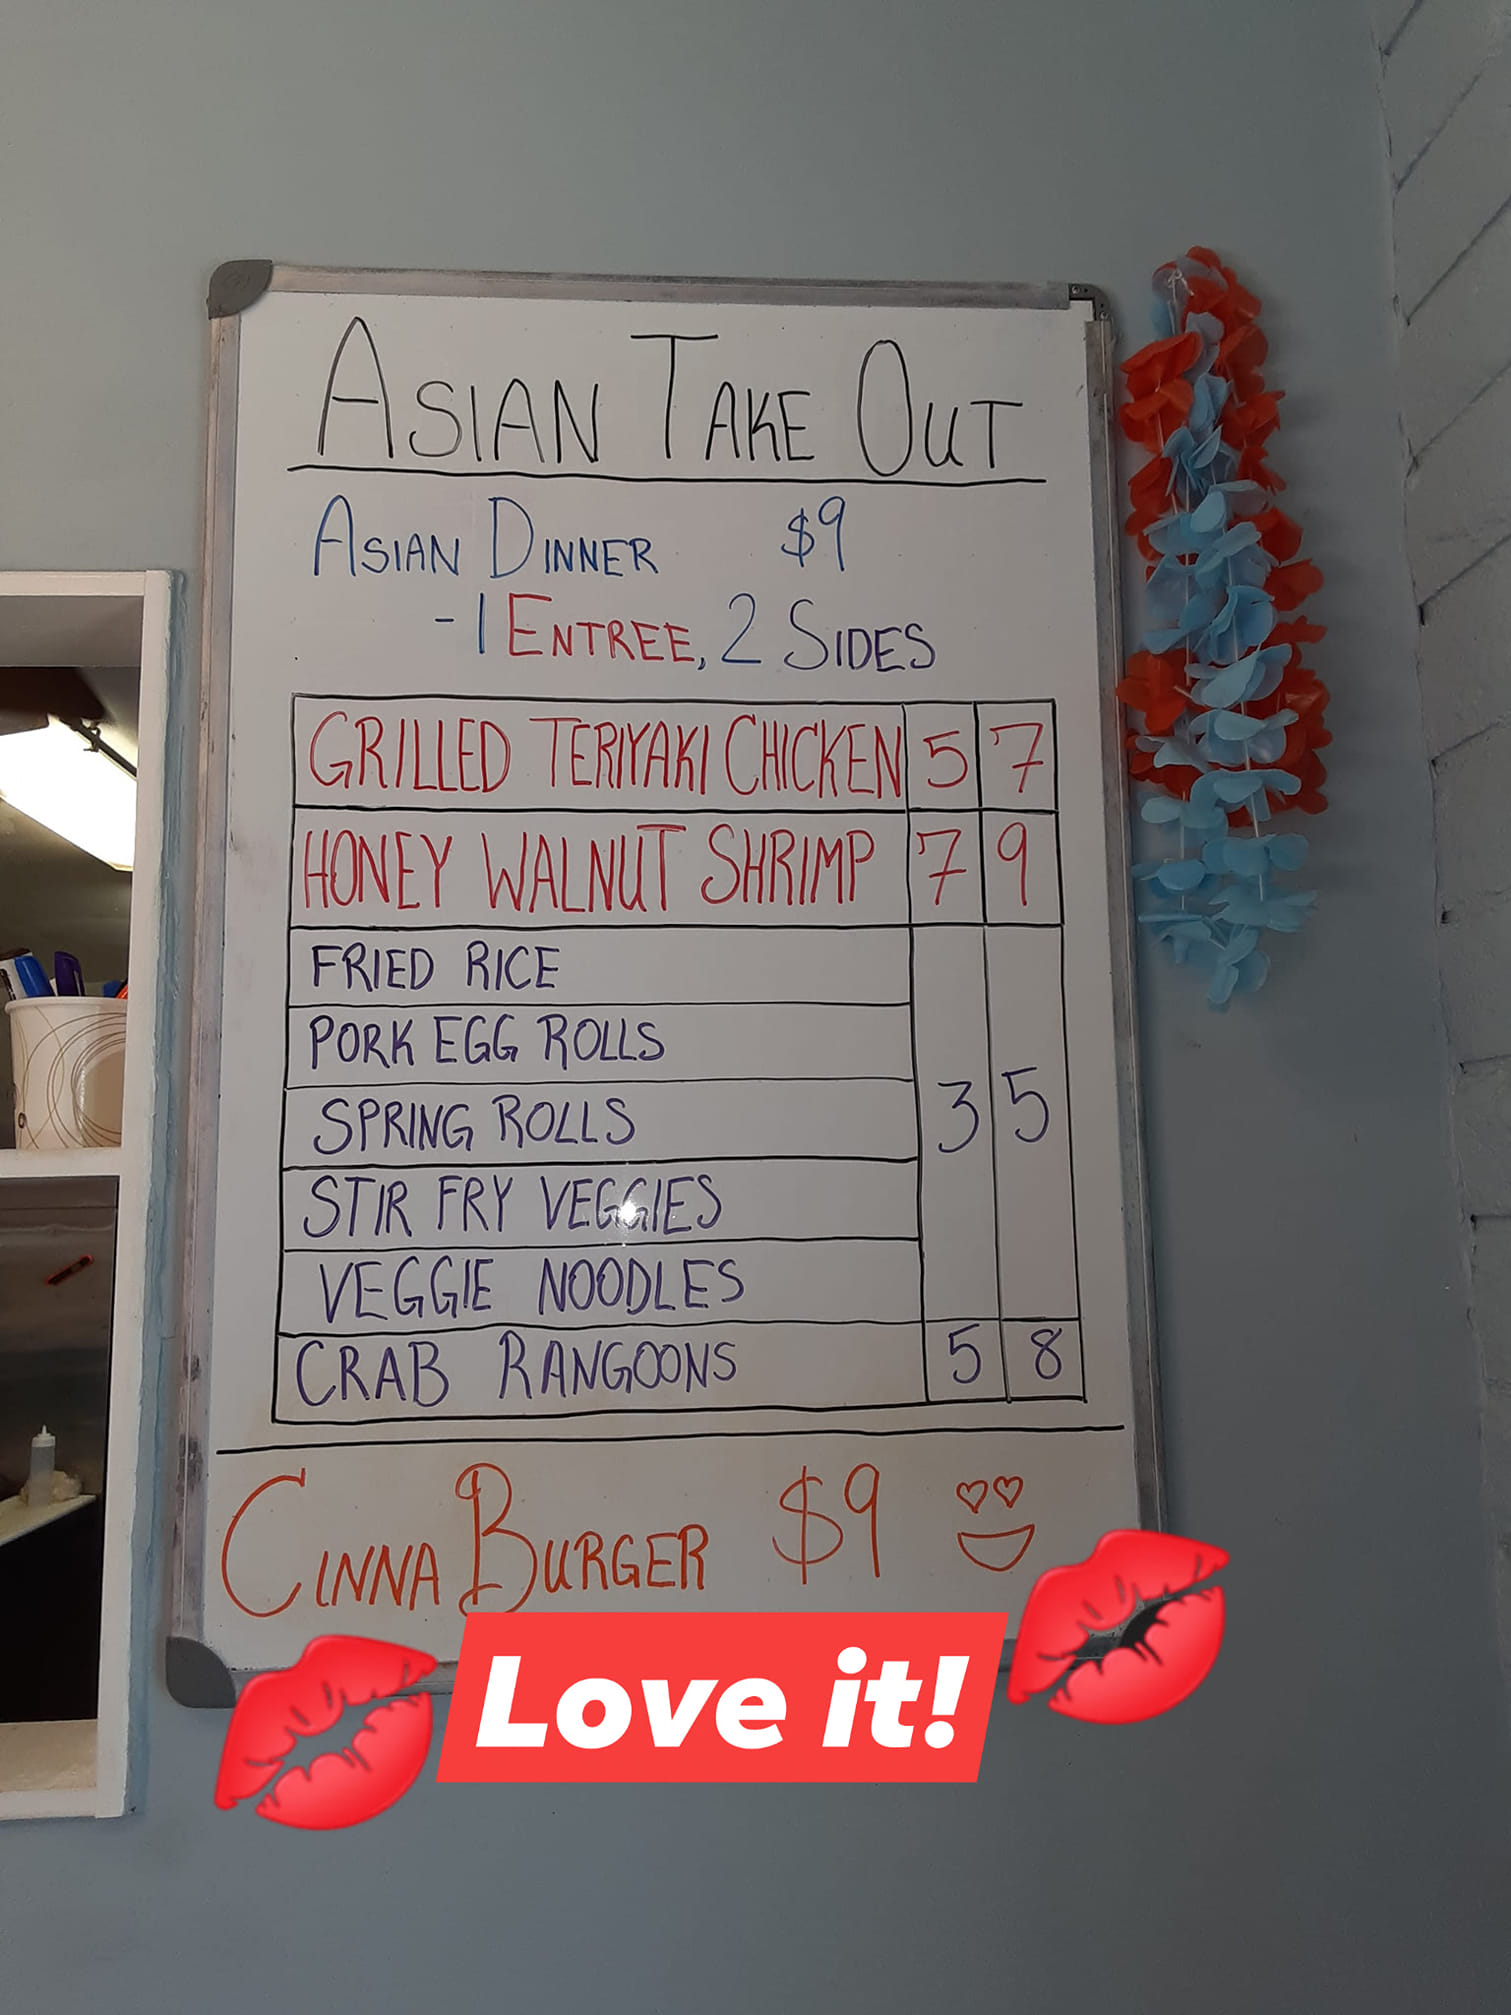 ASIAN TAKE OUT
ASIAN DINNER $9
-1 ENTREE, 2 SIDES
GRILLED TERIYAKI CHICKEN 5 7
HONEY WALNUT SHRIMP 7 9
FRIED RICE
PORK EGG ROLLS
SPRING ROLLS 3 5
STIR FRY VEGGIES
VEGGIE NOODLES
CRAB RANGOONS 5 8
CINNA BURGER $9
Love it!